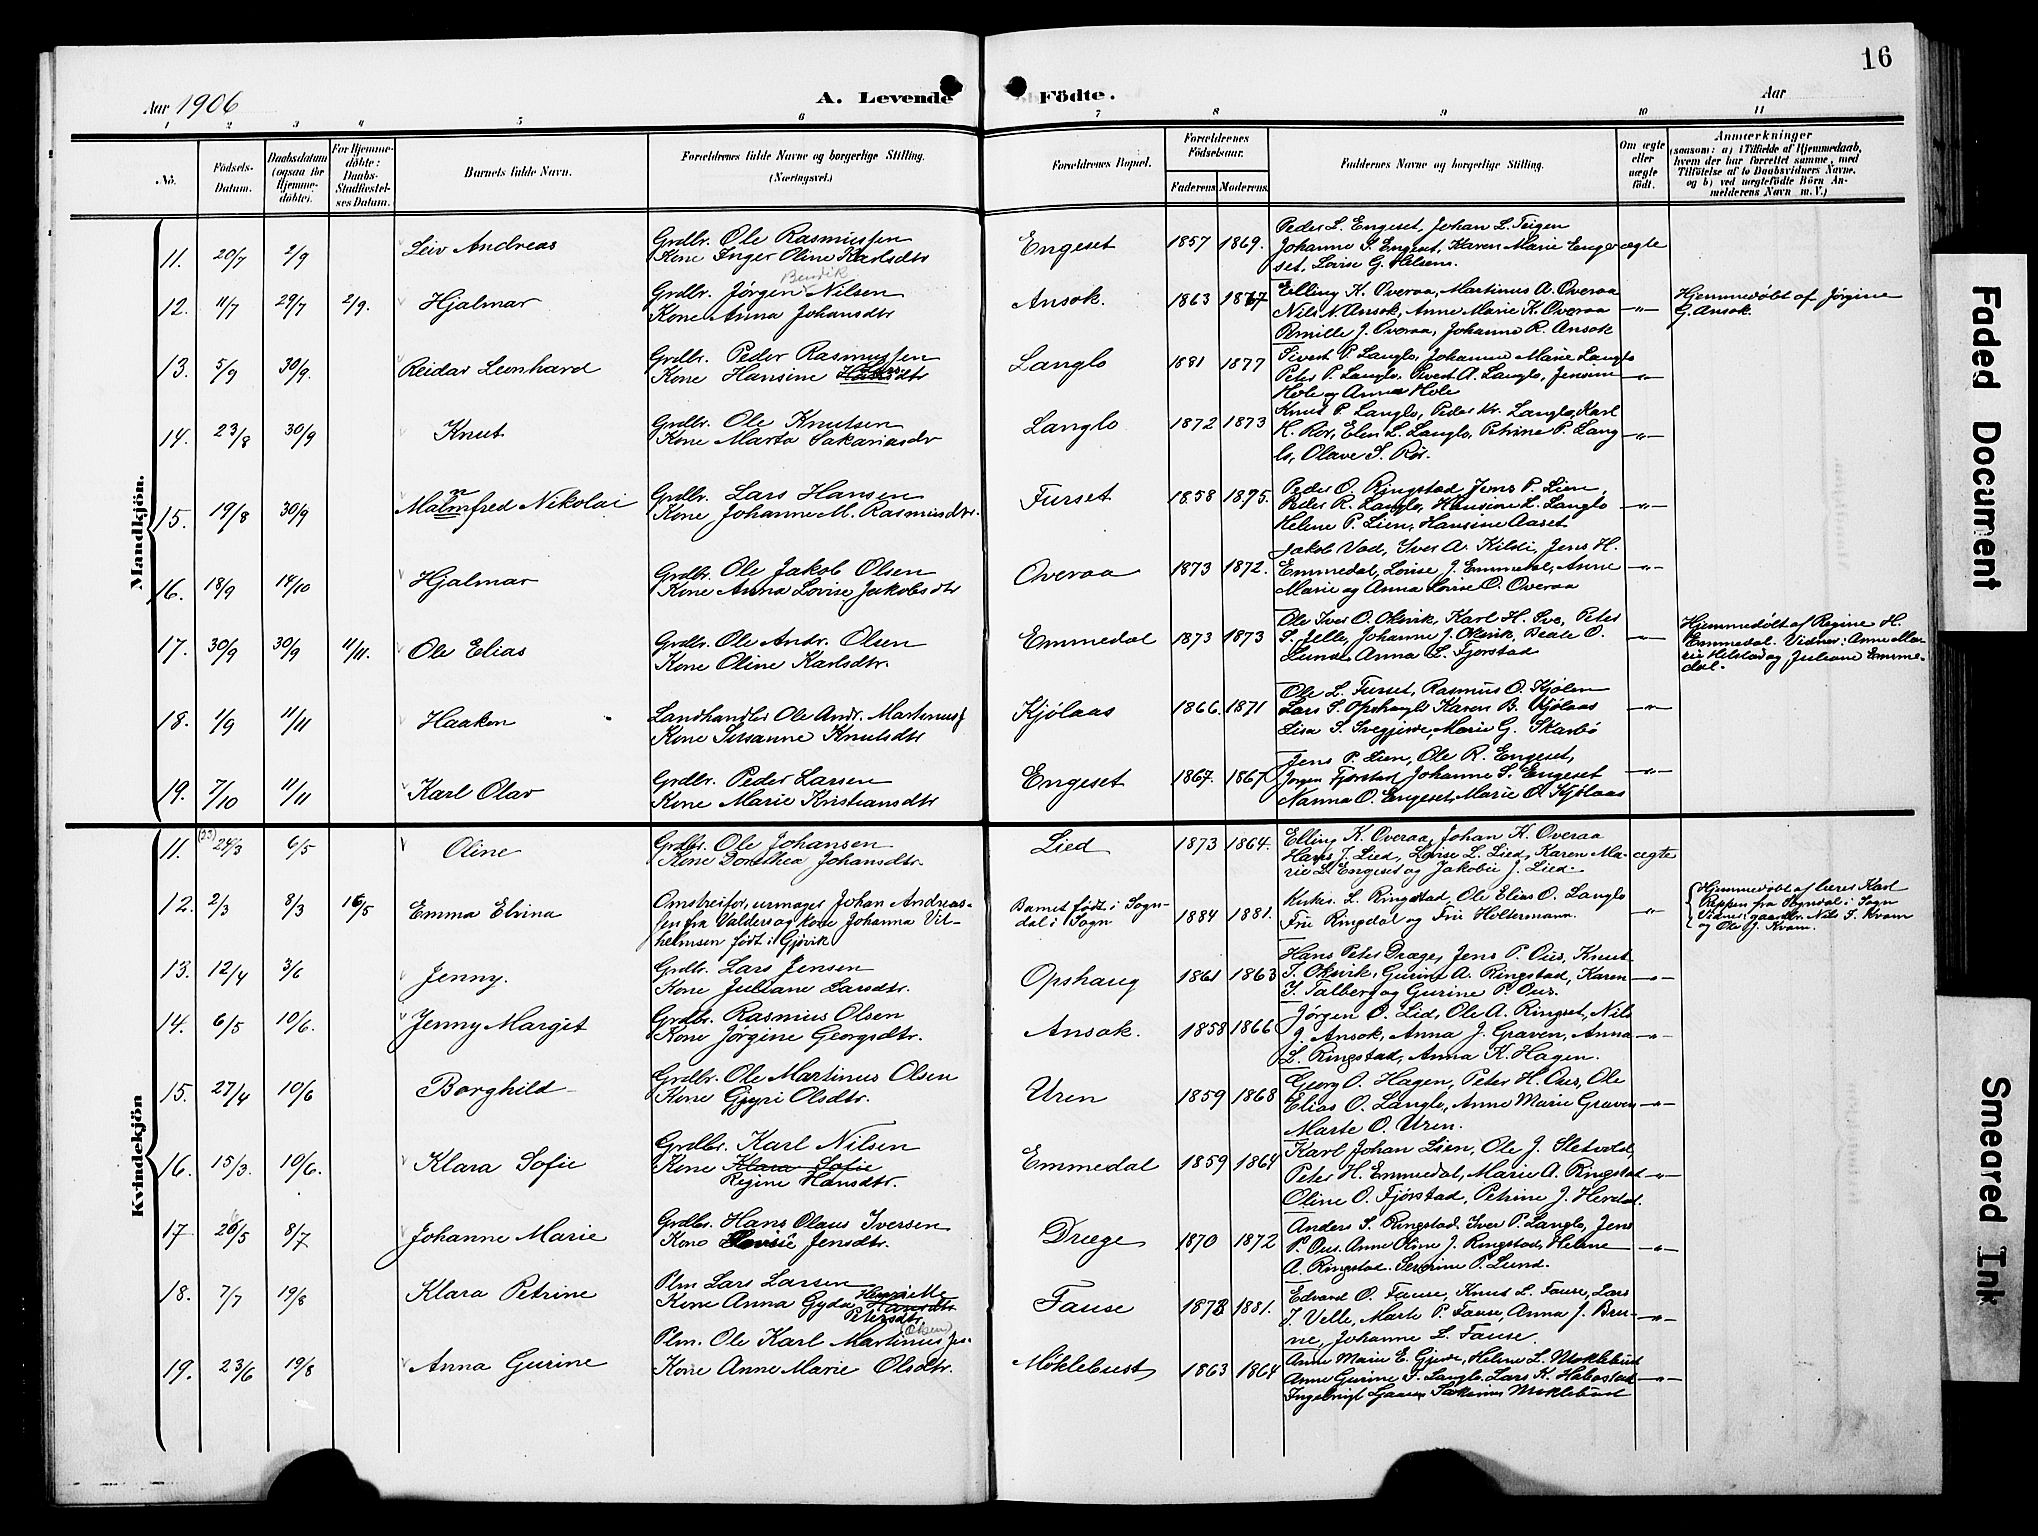 16
Aar 1906
A. Levende Födte.
Aar
1 2 3 4 5 6 7 8 9 10 11
No.
Födsels-Datum.
Daabsdatum (ogsaa for Hjemme-döbte).
For Hjemme-döbte: Daabs-Stadfæstel-ses Datum.
Barnets fulde Navn.
Forældrenes fulde Navne og borgerlige Stilling. (Næringsvei.)
Forældrenes Bopæl.
Forældrenes Födselsaar.
Faderens Moderens.
Faddernes Navne og borgerlige Stilling.
Om ægte eller uægte født.
Anmærkninger
(saasom: a) i Tilfælde af Hjemmedaab, hvem der har forrettet samme, med Tilföielse af to Daabsvidners Navne, og b) ved uægtefödte Börn An-melderens Navn m. V.)
Mandkjön.
11. 20/7 2/9 Leiv Andreas
Grdbr. Ole Rasmussen
Kone Inger Oline Karlsdtr
Engeset 1857 1869.
Peder L. Engeset, Johan L. Teigen
Johanne S. Engeset, Karen Marie Enge-
set, Lovise G. Helsem.
ægte
12. 11/7 29/7 2/9. Hjalmar
Bendik
Grdbr. Jørgen Nilsen
Kone Anna Johansdtr
Ansok. 1863 1867
Elling K. Overaa, Martinus A. Overaa
Nils N Ansok, Anne Marie K. Overaa
Pernille J. Overaa, Johanne R. Ansok
-"-
Hjemmedøbt af Jørgine
G. Ansok.
13. 5/9 30/9. Reidar Leonhard
Grdbr. Peder Rasmussen
Kone Hansine
Langlo 1881 1877
Sivert P. Langlo, Johanne Marie Langlo
Peter P. Langlo, Sivert A. Langlo, Jensine
Hole og Anna Hole
-"-
14. 23/8 30/9 Knut
Grdbr. Ole Knutsen
Kone Marta Sakariasdr
Langlo 1872 1873
Knut P. Langlo, Peder Kr. Langlo, Karl
H. Rør, Elen L. Langlo, Petrine P. Lang-
lo, Olave S. Rør.
-"-
15. 19/8 30/9 Malmfred Nikolai
Grdbr. Lars Hansen
Kone Johanne M. Rasmusdtr.
Furset 1858 1875.
Peder O. Ringstad, Jens P. Lien,
Peder R. Langlo, Hansine L. Langlo
Helene P. Lien, Hansine Aaset
-"-
16. 18/9 14/10 Hjalmar
Grdbr. Ole Jakob Olsen
Kone Anna Lovise Jakobsdtr
Overaa 1873 1872.
Jakob Vad, Iver A. Kilde, Jens H.
Emmedal, Lovise J. Emmedal, Anne
Marie og Anna Lovise O. Overaa
-"-
17. 30/9 30/9 11/11. Ole Elias
Grdbr. Ole Andr. Olsen
Kone Oline Karlsdtr.
Emmedal 1873 1873
Ole Iver O. Oksvik, Karl H. Sve, Peter
S. Jelle, Johanne J. Oksvik, Beate O.
Lunde, Anna L. Fjørstad
-"-
Hjemmedøbt af Regine H.
Emmedal. Vidner: Anne Ma-
rie Helstad og Juliane Emme-
dal.
18. 1/9 11/11 Haaken
Landhandler Ole Andr. Martinus
Kone Susanne Knutsdtr
Kjölaas 1866. 1871
Ole L. Furset, Rasmus O. Kjölen
Lars S. Opshaug, Karen B. Kjölaas
Lisa S. Svegjerde, Marie G. Skarbö
-"-
19. 7/10 11/11 Karl Olav
Grdbr. Peder Larsen
Kone Marie Kristiansdtr
Engeset 1867. 1867
Jens P. Lien, Ole R. Engeset,
Jørgen Fjørstad, Johanne S. Engeset
Nanna O. Engeset, Marie O. Kjölaas
-"-
Kvindekjön
11. (23) 24/3 6/5 Oline
Grdbr. Ole Johansen
Kone Dorothea Johansdtr.
Lied 1873 1864.
Elling K. Overaa, Johan K. Overaa
Hans J. Lied, Lovise L. Lied, Karen Ma-
rie L. Engeset og Jakobie J. Lied.
ægte
12. 2/3 8/3 16/5 Emma Elvina
Omstreifer, urmager Johan Andreas-
sen fra Valders og kone Johanna Vil-
helmsen født i Gjøvik
Barnet født i Sogn-
dal i Sogn
1884 1881.
Kirkes. L. Ringstad, Ole Elias O. Langlo
Fru Ringdal og Fru Holtermann.
-"-
Hjemmedøbt af lærer Karl
Reppen fra Sogndal i Sogn
Vidner: gaardbr. Nils T. Kvam
og Ole J. Kvam.
13. 12/4 3/6 Jenny.
Grdbr. Lars Jensen
Kone Juliane Larsdtr.
Opshaug 1861 1863
Hans Peter Drage, Jens P. Ous, Knut
T. Oksvik, Gurine A. Ringstad, Karen
I. Talberg og Gurine P. Ous.
-"-
14. 6/5 10/6. Jenny Margit
Grdbr. Rasmus Olsen
Kone Jørgine Georgsdtr.
Ansok. 1858 1866
Jørgen O. Lid, Ole A. Ringset, Nils
J. Ansok, Anna J. Graven, Anna
L. Ringstad, Anna K. Hagen.
-"-
15. 27/4 10/6 Borghild
Grdbr. Ole Martinus Olsen
Kone Gyri Olsdtr.
Uren 1859 1868
Georg O. Hagen, Peter H. Ous, Ole
Elias O. Langlo, Anne Marie Graven
Marte O. Uren.
-"-
16. 15/3. 10/6. Klara Sofie
Grdbr. Karl Nilsen
Kone Klara Sofie
Regine Hansdtr.
Emmedal 1859 1864
Karl Johan Lien, Ole J. Sletvold,
Peter H. Emmedal, Marie A. Ringstad
Oline O. Fjørstad, Petrine J. Herdal.
-"-
17 26/5 8/7 Johanne Marie
Grdbr. Hans Olaus Iversen
Kone Lovise Jensdtr.
Dræge 1870 1872
Anders S. Ringstad, Iver P. Langlo, Jens
P. Ous. Anne Oline J. Ringstad, Helene
A. Ringstad. Severine P. Lund.
-"-
18. 7/7 19/8 Klara Petrine
Plm Lars Larsen
Kone Anna Gyda Henriette Hansdtr
Petersdtr.
Fause 1878 1881.
Edvard O. Fause, Knut L. Fause, Lars
I. Velle, Marte P. Fause, Anna J. Bru-
ne, Johanne L. Fause.
-"-
19. 23/6 19/8 Anna Gurine
Plm. Ole Karl Martinus (Olsen)
Kone Anne Marie Olsdtr.
Møklebust 1863 1864
Anne Marie E. Gjerde, Helene L. Møklebust
Anne Gurine S. Langlo, Lars K. Habostad
Ingebrigt Gaasen, Sakarias Møklebust
-"-
Faded Document
Smeared Ink